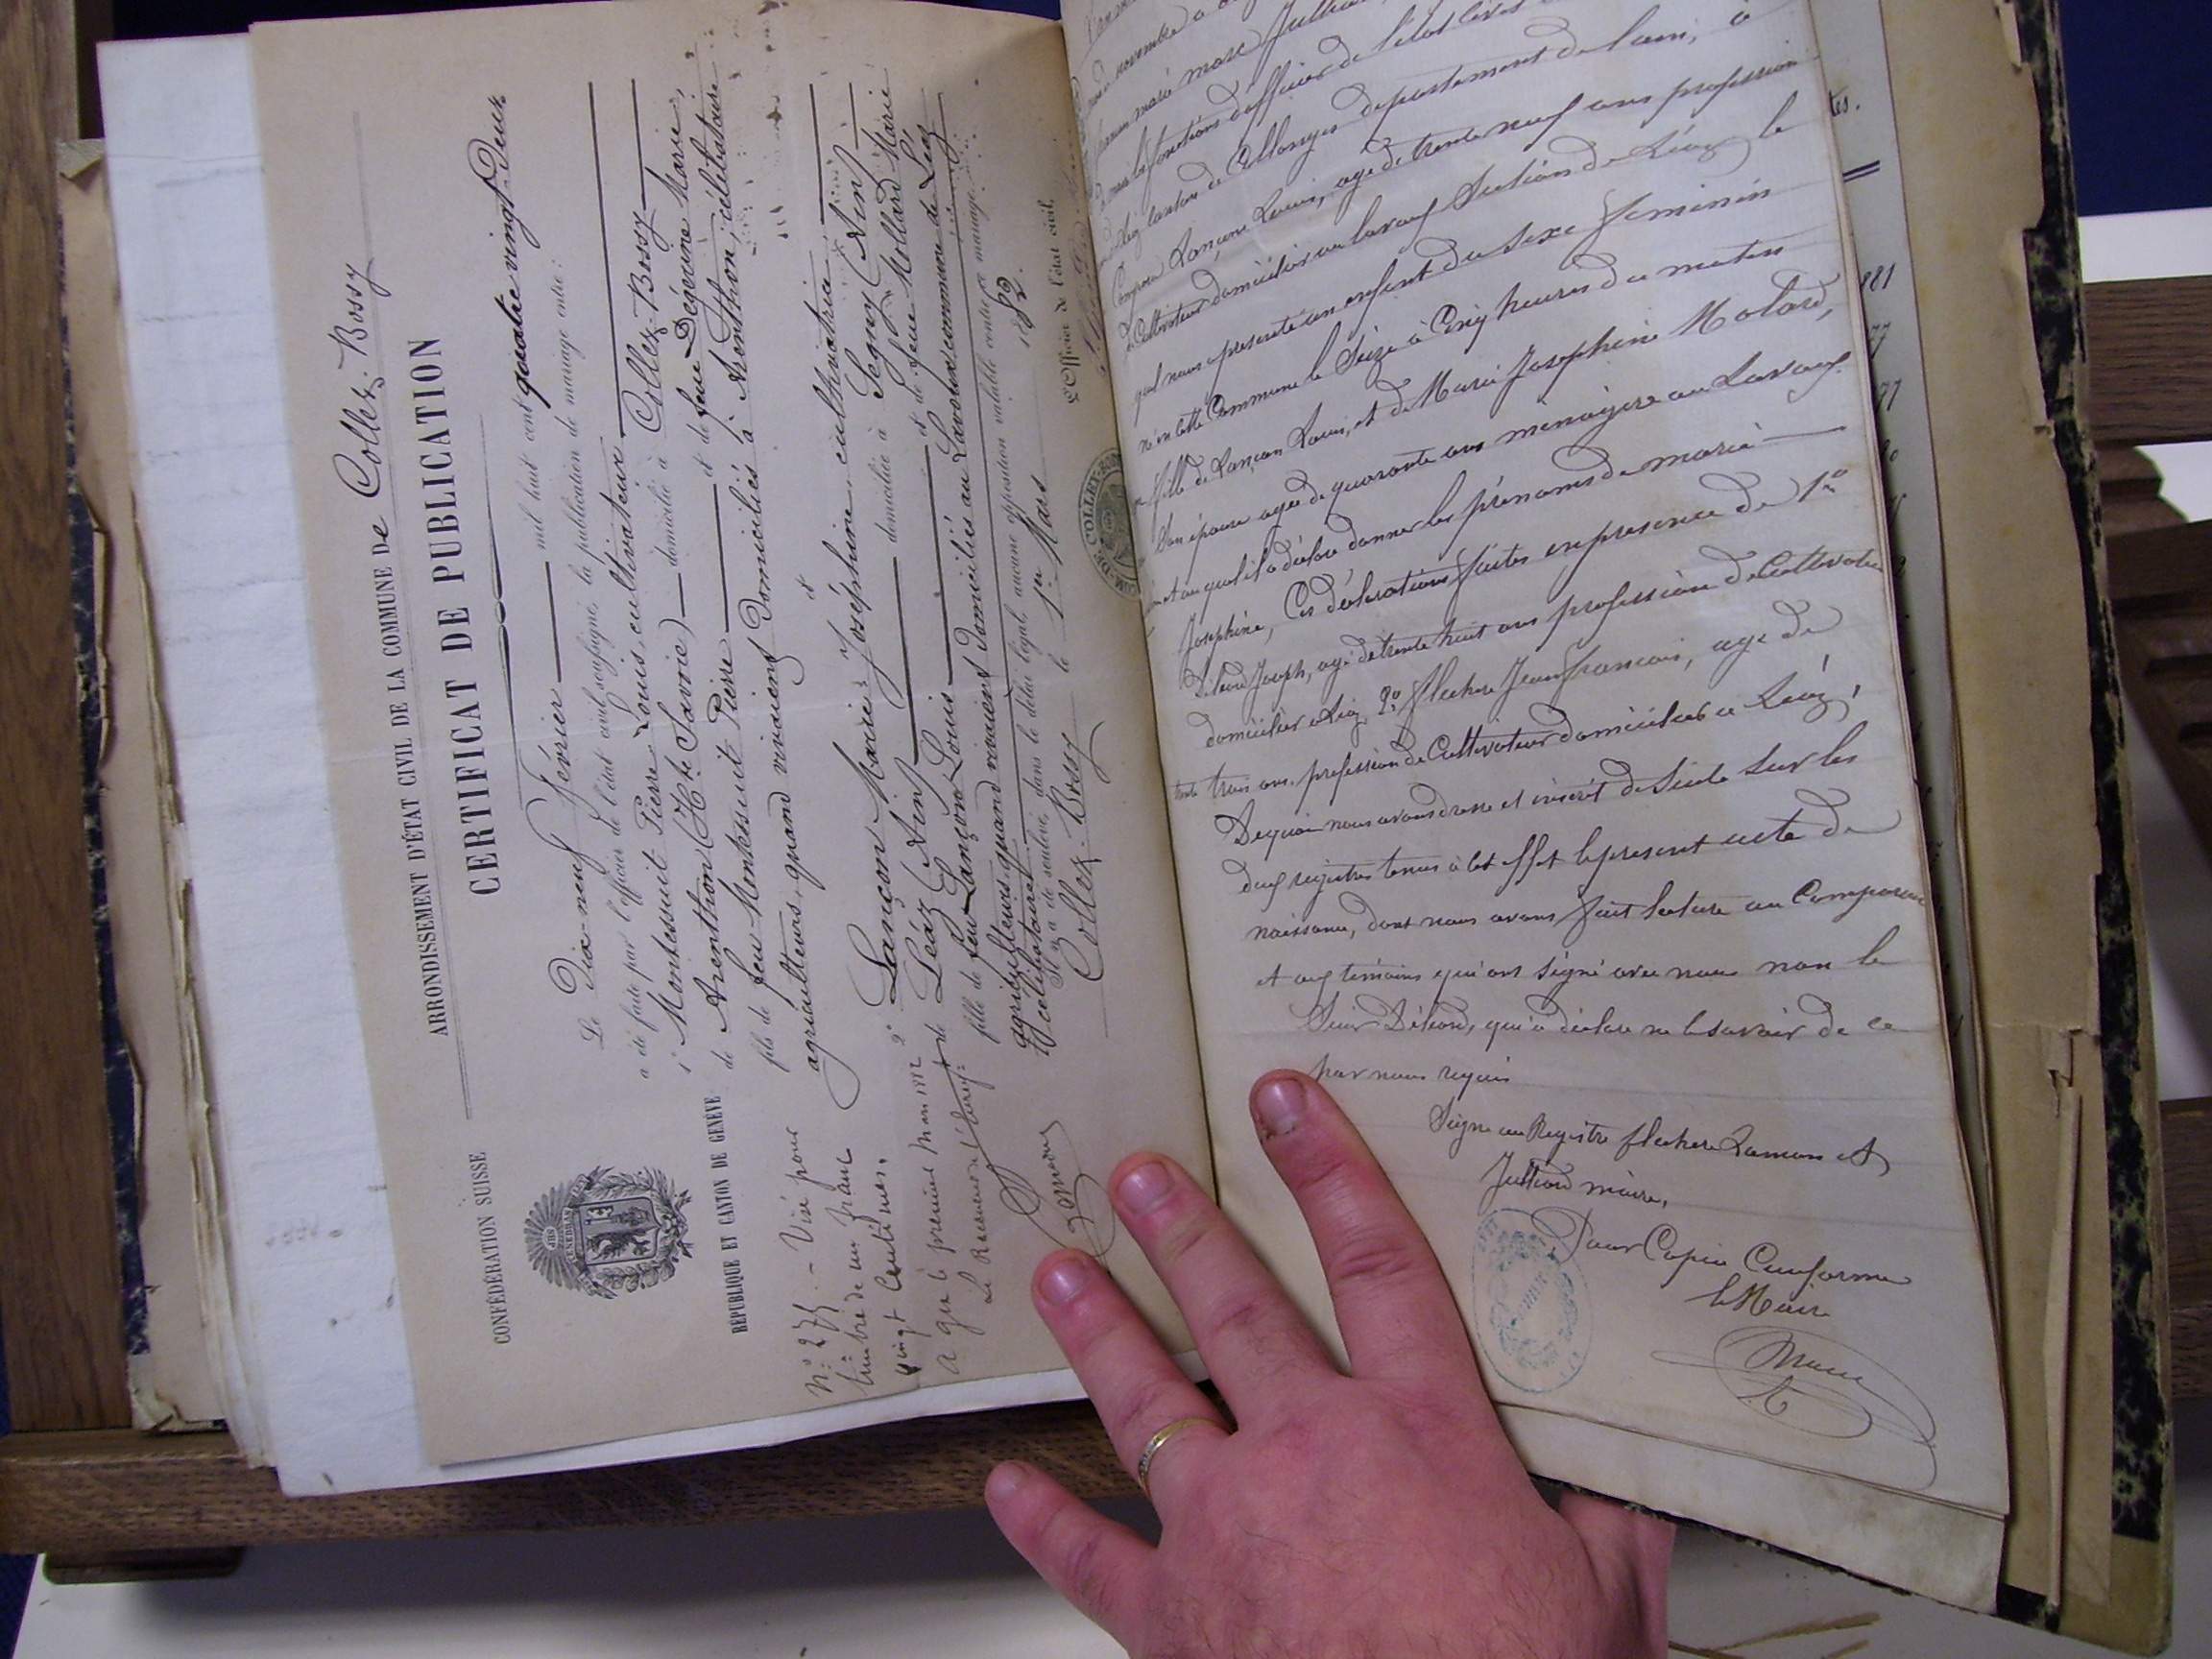 ARRONDISSEMENT D'ÉTAT CIVIL DE LA COMMUNE De Collex-Bossy
CERTIFICAT DE PUBLICATION
CONFÉDÉRATION SUISSE
RÉPUBLIQUE ET CANTON DE GENÈVE
Le Dix-neuf Février mil huit cent quatre vingt-deux
a été faite par l'officier de l'état civil soussigné, la publication de mariage entre :
1° Montessuit Pierre Louis, cultivateur
de Arenthon (Hte Savoie) domicilié à Collex-Bossy
fils de feu Montessuit Pierre et de feue Dégerine Marie,
agriculteurs, quand vivaient domiciliés à Arenthon, célibataire
et
2° Lançon Marie Joséphine cultivatrice
de Léaz (Ain) domiciliée à Segny (Ain)
fille de feu Lançon Louis et de feue Mollard Marie
agriculteurs quand vivaient domiciliés au Lavoux commune de Léaz
célibataire
Il n'a été soulevé, dans le délai légal, aucune opposition valable contre ce mariage.
Collex-Bossy le 1er Mars 1882.
L'Officier de l'état civil,
N° 275. - Visé pour
timbre de un franc
vingt centimes.
A Gex le premier Mars 1882
Le Receveur
novembre à
marie marc Julliard
les fonctions d'officier de l'état civil
canton de Collonges département de l'ain, à
Comparu Lançon Louis, agé de trente neuf ans profession
de Cultivateur domicilié au lavoux Section de Léaz le
quel nous a presenté un enfant du Sexe feminin
né en cette Commune le Seize à Cinq heures du matin
fille de Lançon Louis, et de Marie Josephine Molard,
Son épouse agée de quarante ans menagère au Lavoux
et auquel il a déclaré donner les prénoms de marie
Josephine, Ces déclarations faites en presence de 1°
Joseph, agé de trente huit ans profession de Cultivateur
domicilier a Léaz, 2° flechere Jean françois, age de
trente trois ans profession de Cultivateur domicilier a Léaz,
De quoi nous avons dressé et inscrit de Suite Sur les
deux registres tenus à cet effet le present acte de
naissance, dont nous avons fait lecture au Comparant
et aux témoins qui ont signé avec nous non le
Sieur qui a déclaré ne le savoir de ce
par nous requis
Signé au Registre flechere Lanson et
Julliard maire,
Pour Copie Conforme
le Maire